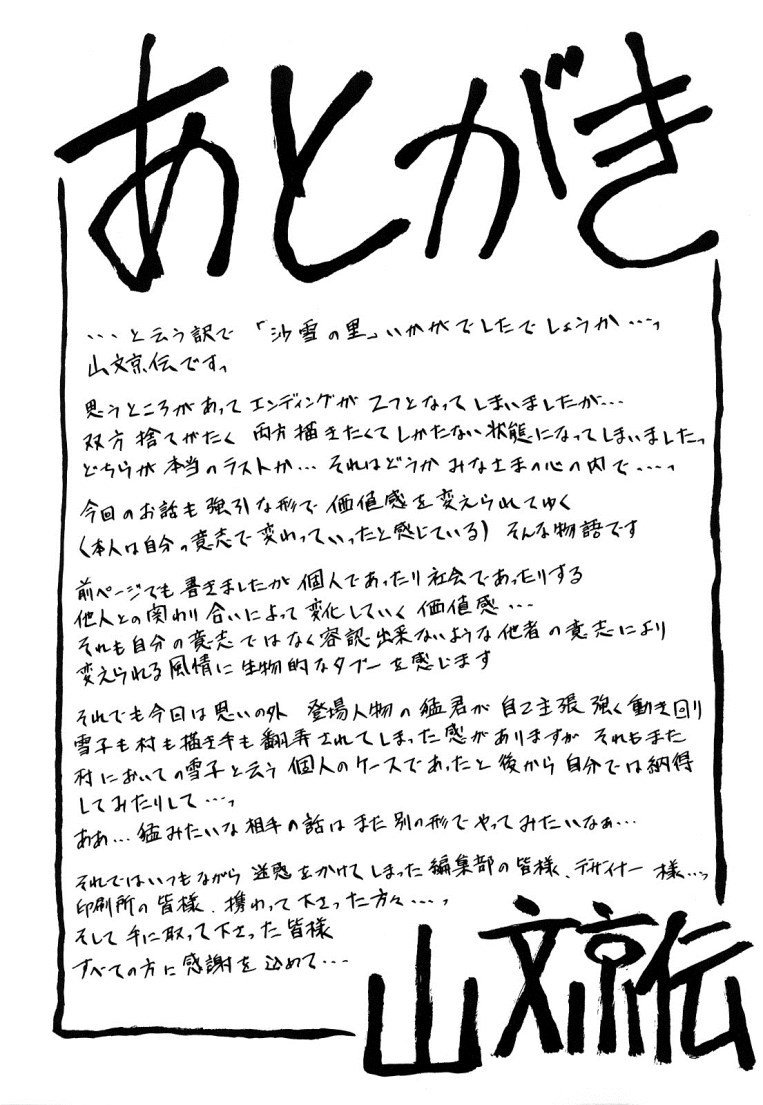 あとがき
・・・と云う訳で 「沙雪の里」いかがでしたでしょうか・・・っ
山文京伝ですっ
思うところがあって エンディングが 2つとなって しまいましたが・・・
双方 捨てがたく 両方 描きたくて しかたない 状態になってしまいましたっ
どちらが 本当の ラストか・・・ それは どうか みなさまの心の内で・・・っ
今回のお話も 強引な形で 価値感を 変えられてゆく
(本人は自分の意志で 変わっていったと感じている) そんな物語です
前ページでも 書きましたが 個人であったり 社会であったりする
他人との関わり合いによって 変化していく 価値感・・・
それも自分の意志ではなく容認出来ないような他者の意志により
変えられる風情に 生物的なタブーを感じます
それでも今回は思いの外 登場人物の猛君が 自己主張 強く動き回り
雪子も村も描き手も翻弄されてしまった感がありますが それもまた
村においての雪子と云う 個人のケースであったと 後から 自分では納得
してみたりして・・・っ
ああ・・・ 猛みたいな 相手の話は また 別の形で やってみたいなぁ・・・
それではいつもながら 迷惑をかけてしまった 編集部の皆様、デザイナー 様・・・っ
印刷所の 皆様、携わって下さった方々・・・っ
そして 手に取って下さった 皆様
すべての方に感謝を 込めて・・・
山文京伝